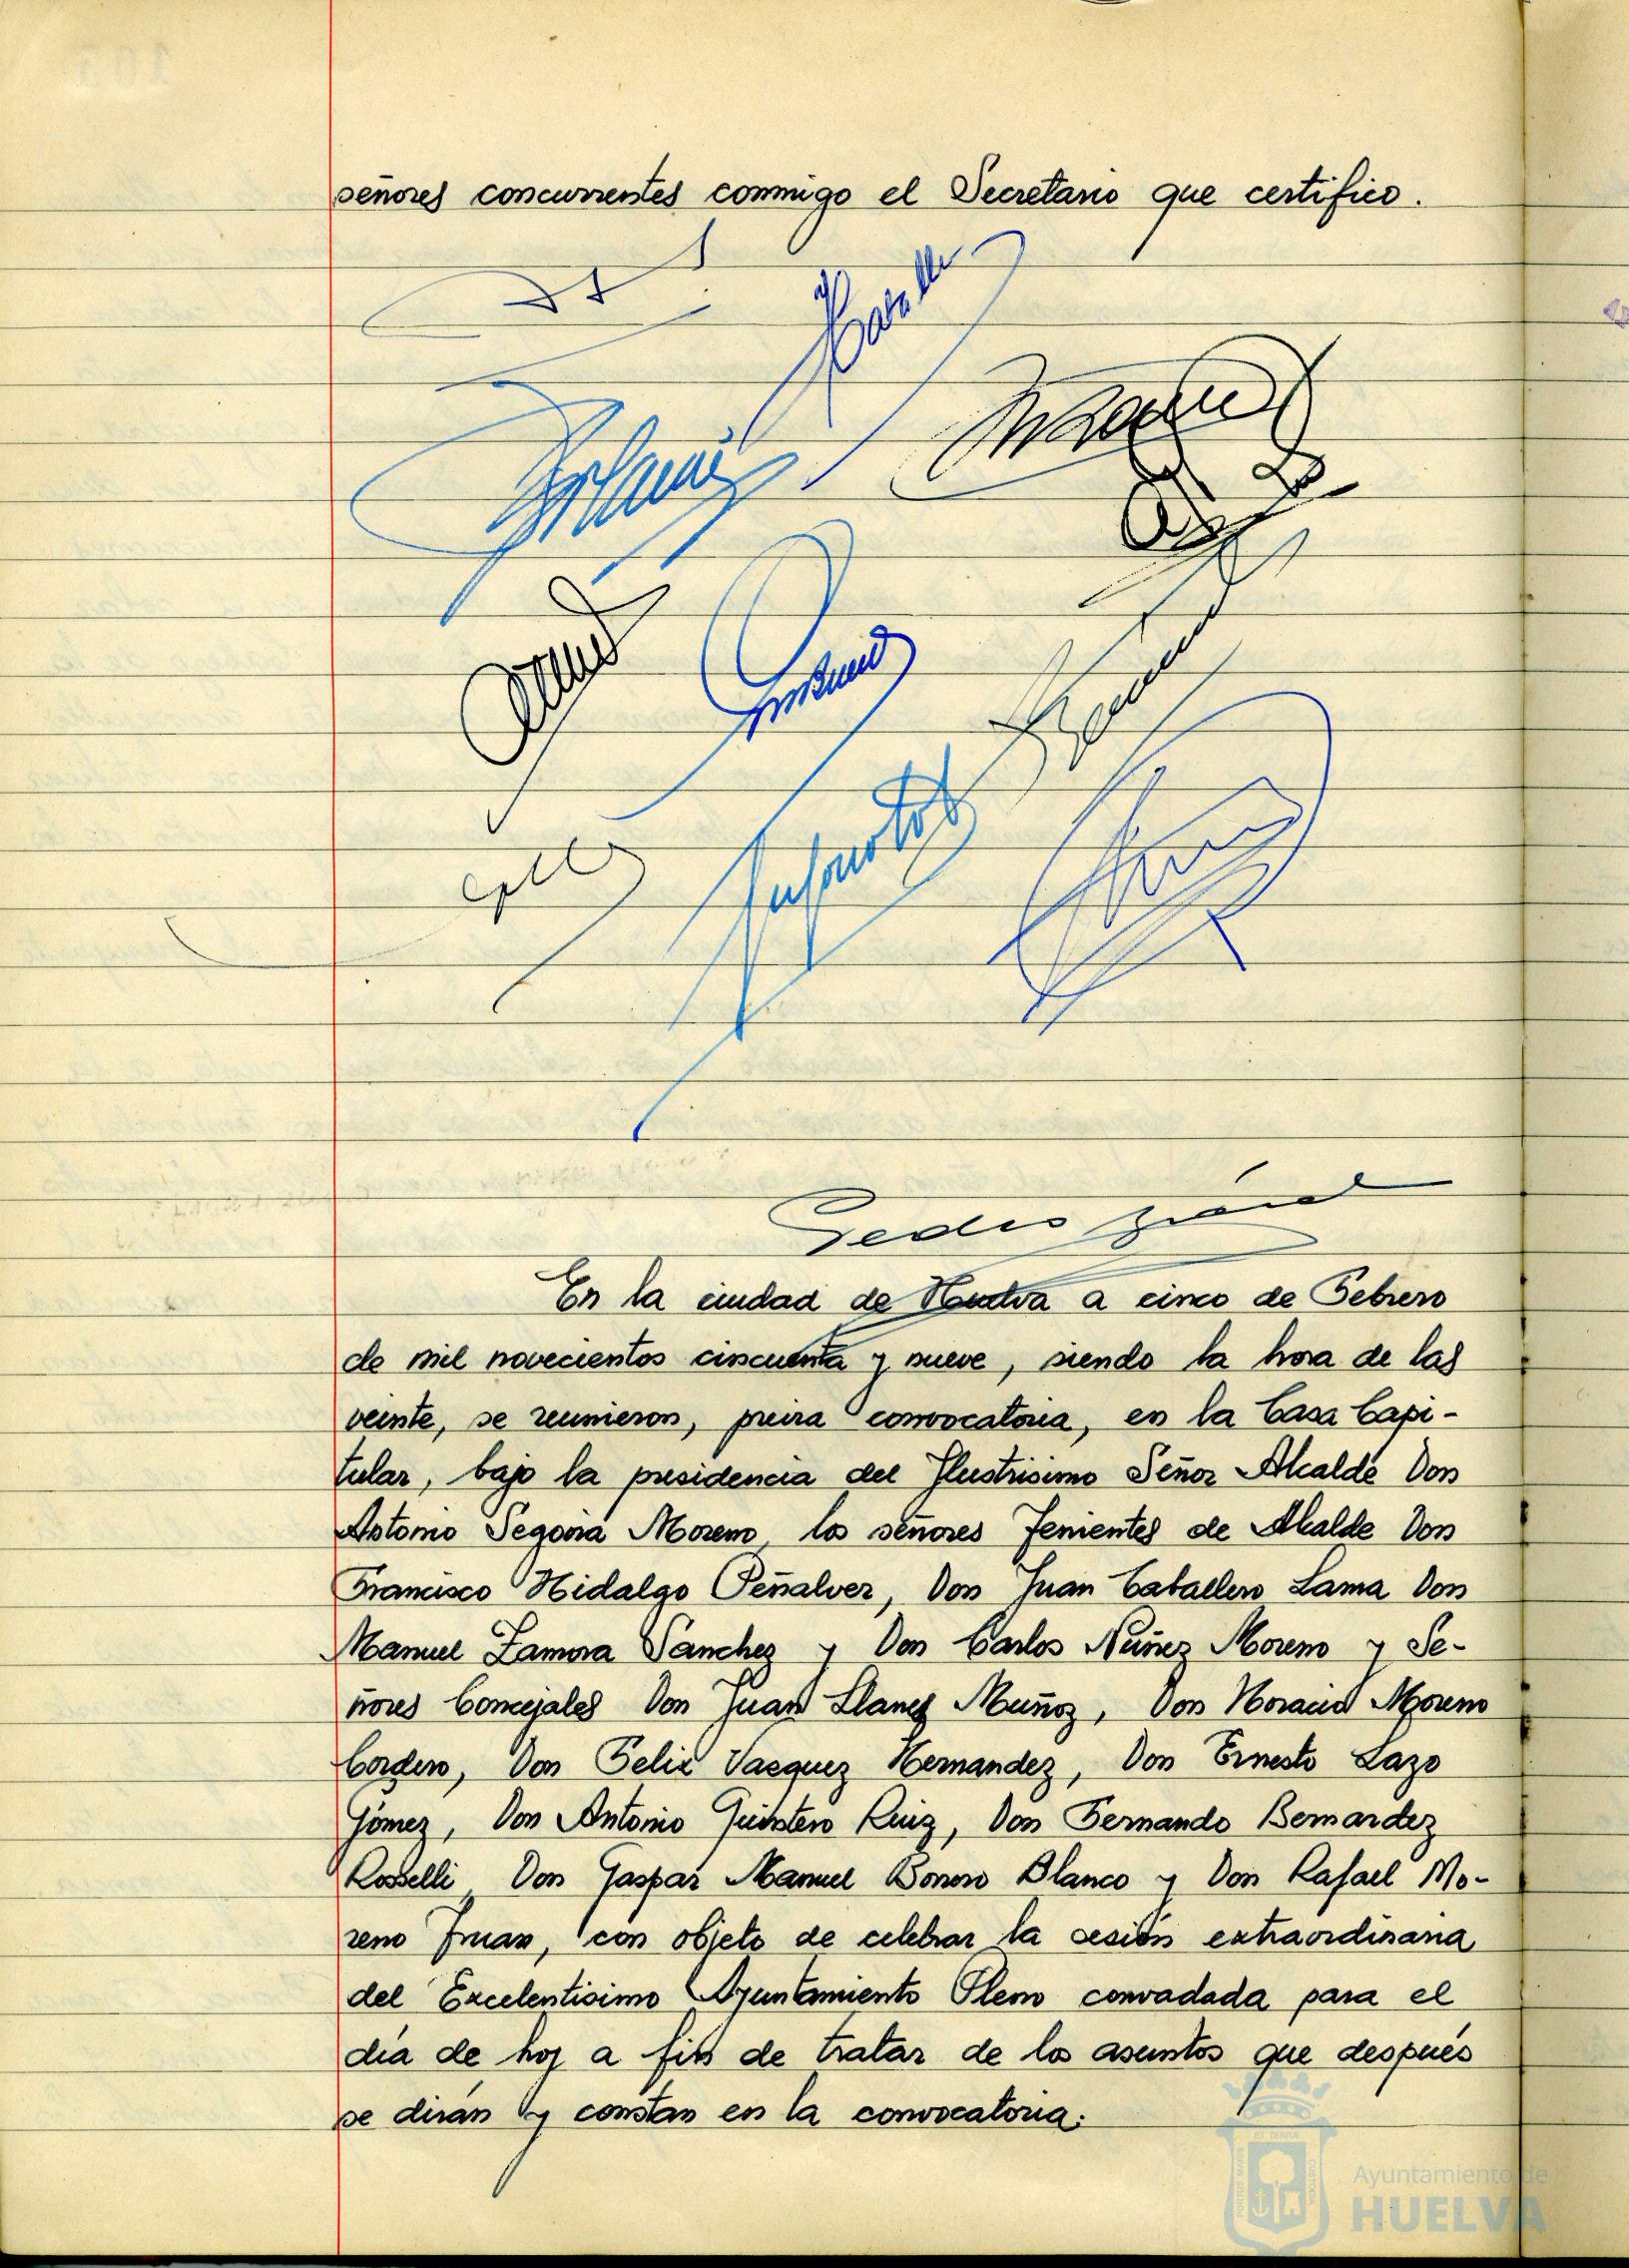 señores concurrentes conmigo el Secretario que certifico.
Pedro
En la ciudad de Huelva a cinco de Febrero
de mil novecientos cincuenta y nueve, siendo la hora de las
veinte, se reunieron, previa convocatoria, en la Casa Capi-
tular, bajo la presidencia del Ilustrisimo Señor Alcalde Don
Antonio Segovia Moreno, los señores Tenientes de Alcalde Don
Francisco Hidalgo Peñalver, Don Juan Caballero Lama Don
Manuel Zamora Sanchez y Don Carlos Nuñez Moreno y Se-
ñores Concejales Don Juan Llanes Muñoz, Don Horacio Moreno
Cordero, Don Felix Vazquez Hernandez, Don Ernesto Lazo
Gómez, Don Antonio Quintero Ruiz, Don Fernando Bernardez
Rosselli, Don Gaspar Manuel Borrero Blanco y Don Rafael Mo-
reno Juan, con objeto de celebrar la sesión extraordinaria
del Excelentisimo Ayuntamiento Pleno convadada para el
día de hoy a fin de tratar de los asuntos que después
se dirán y constan en la convocatoria:
Ayuntamiento de
HUELVA